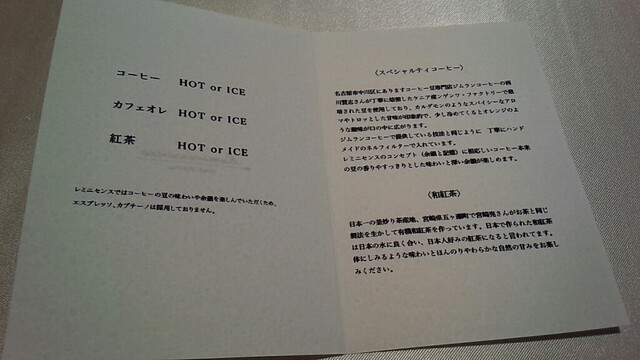 コーヒー HOT or ICE
カフェオレ HOT or ICE
紅茶 HOT or ICE
レミニセンスではコーヒーの豆の味わいや余韻を楽しんでいただくため、
エスプレッソ、カプチーノは採用しておりません。
〈スペシャルティコーヒー〉
名古屋市中川区にありますコーヒー豆専門店ジムランコーヒーの西
川賢志さんが丁寧に焙煎したケニア産ンゲンワ・ファクトリーで栽
培された豆を使用しており、カルダモンのようなスパイシーなアロ
マやトロッとした甘味が印象的で、少し冷めてくるとオレンジのよ
うな酸味が口の中に広がります。
ジムランコーヒーで提供している技法と同じように 丁寧にハンド
メイドのネルフィルターで入れています。
レミニセンスのコンセプト（余韻と記憶）に相応しいコーヒー本来
の豆の香りやすっきりとした味わいと深い余韻が楽しめます。
〈和紅茶〉
日本一の釜炒り茶産地、宮崎県五ヶ瀬町で宮崎亮さんがお茶と同じ
製法を生かして有機和紅茶を作っています。日本で作られた和紅茶
は日本の水に良く合い、日本人好みの紅茶になると言われてます。
体にしみるような味わいとほんのりやわらかな自然の甘みをお楽し
みください。